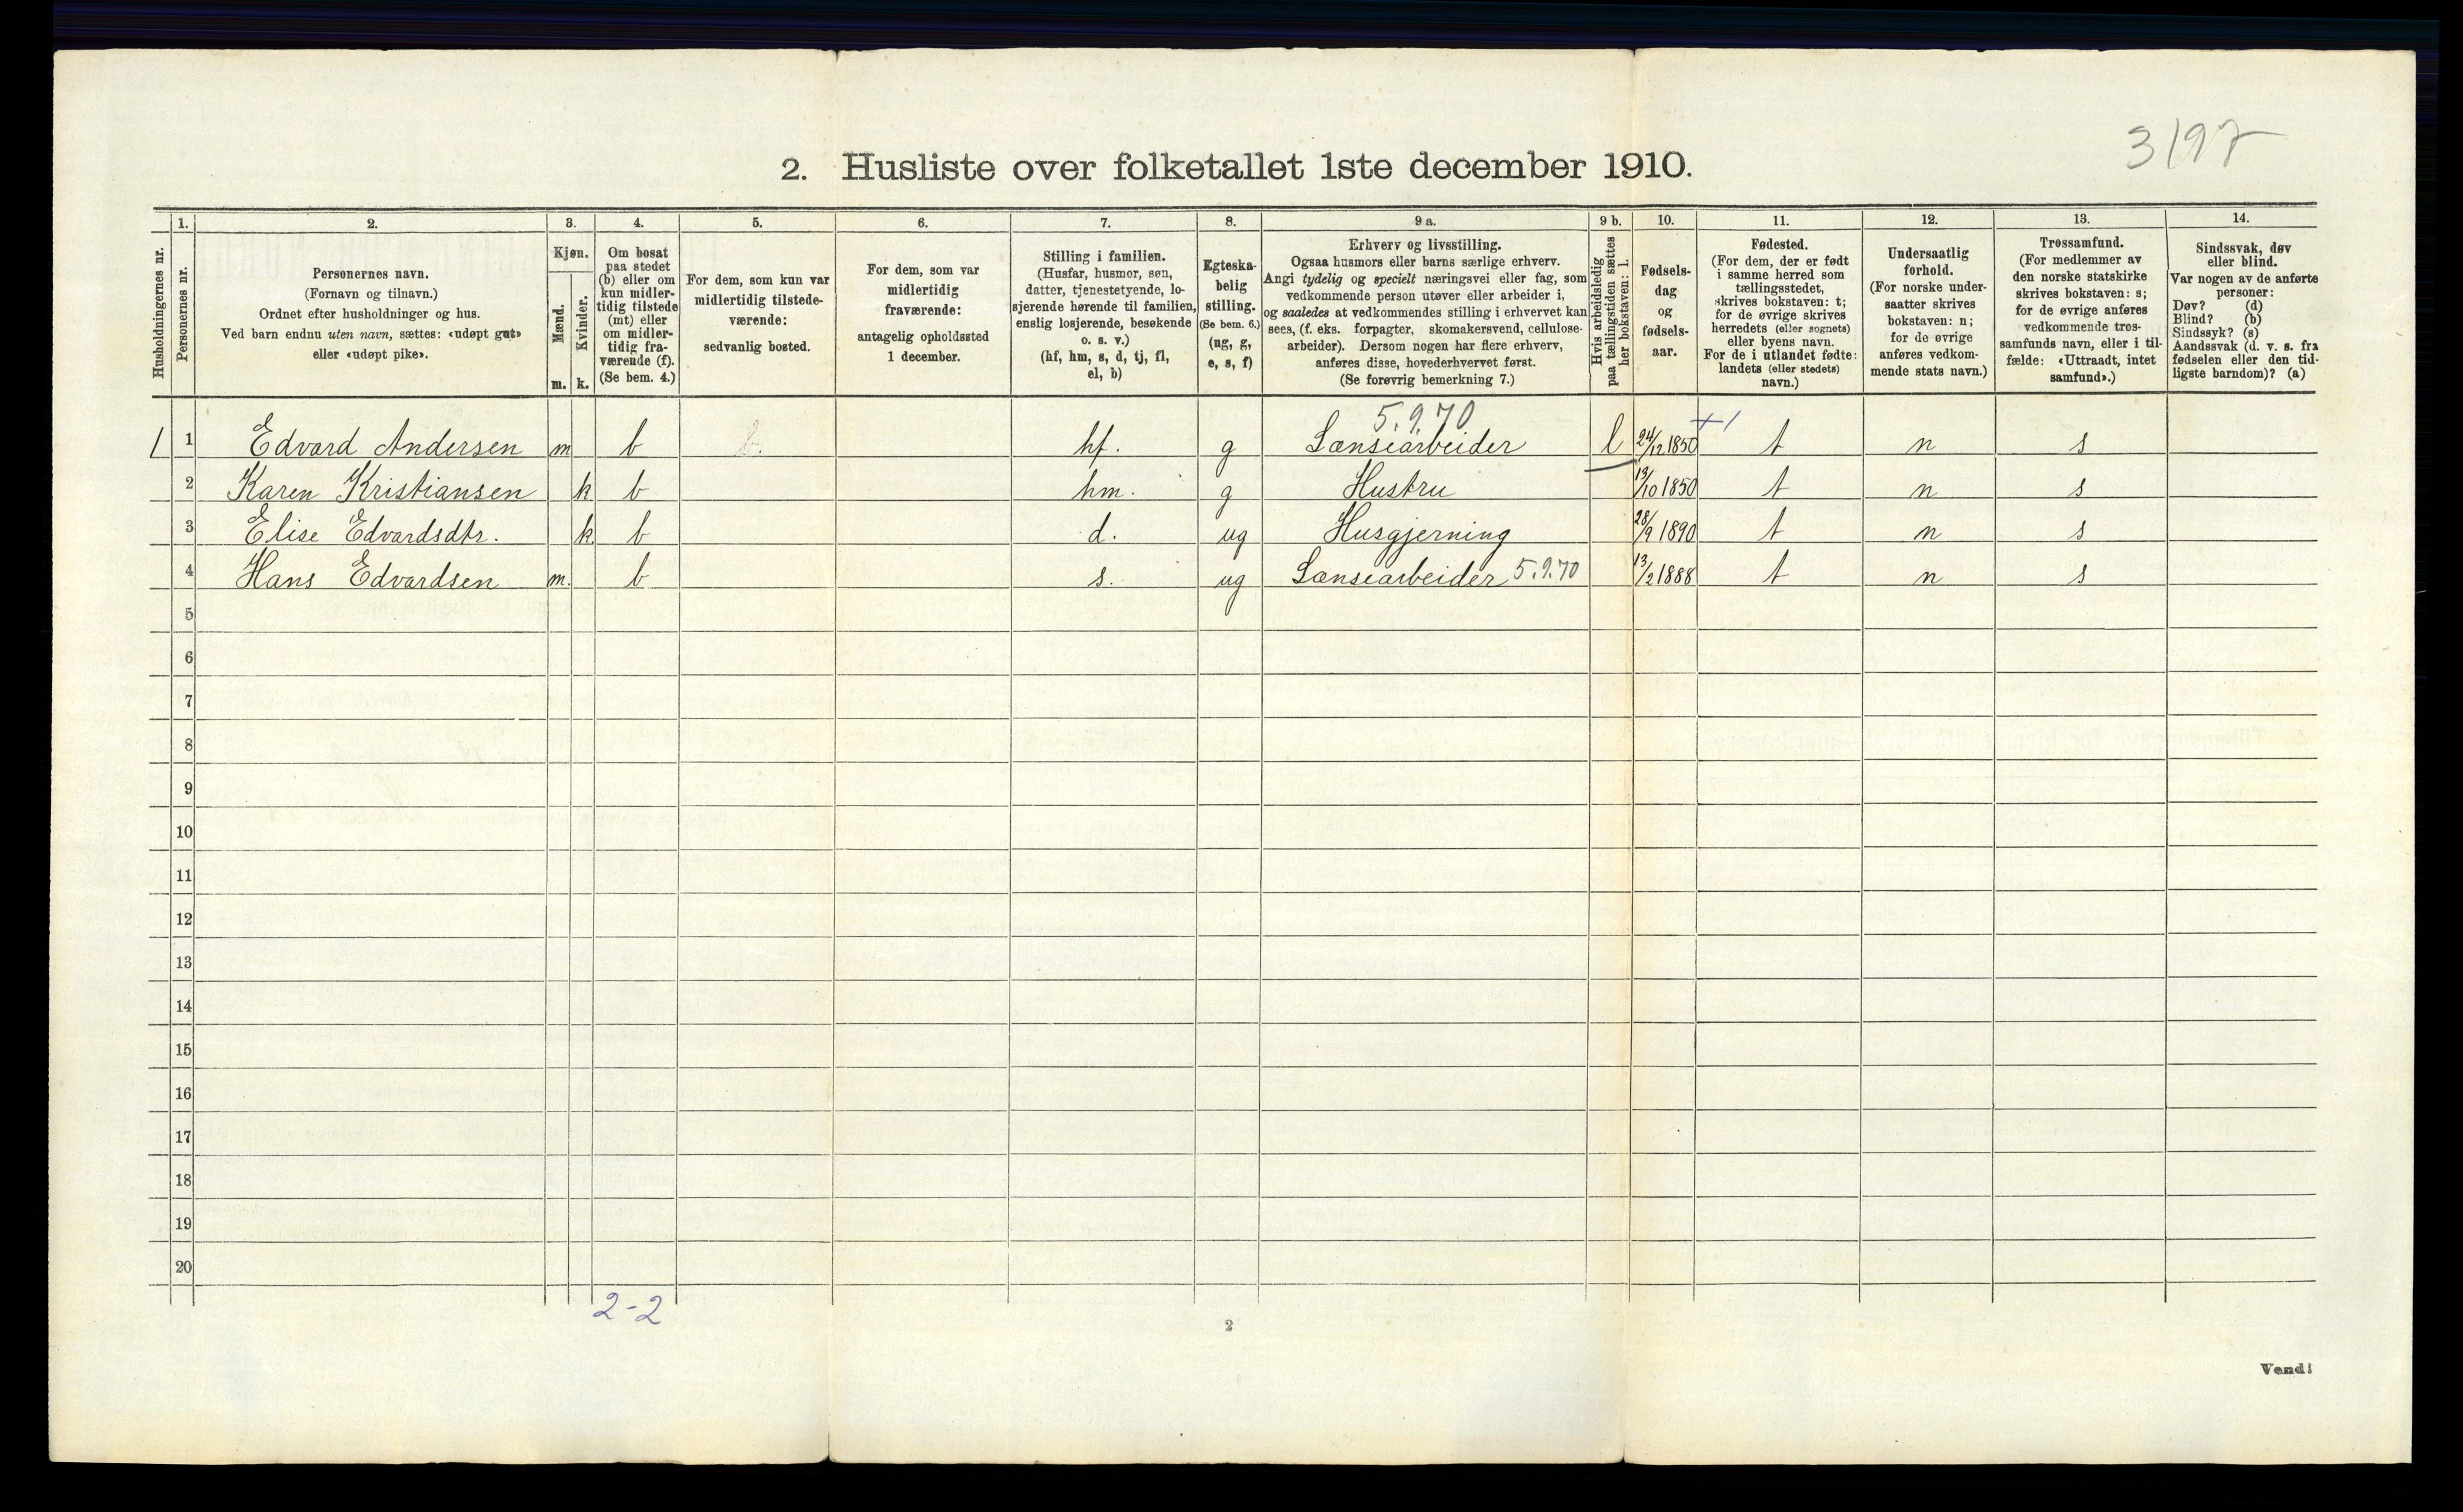 3/97
2. Husliste over folketallet 1ste december 1910.
Husholdningernes nr.
1. Personernes nr.
2. Personernes navn.
(Fornavn og tilnavn.)
Ordnet efter husholdninger og hus.
Ved barn endnu uten navn, sættes: «udøpt gut»
eller «udøpt pike».
3. Kjøn.
Mænd. m.
Kvinder. k.
4. Om bosat
paa stedet
(b) eller om
kun midler-
tidig tilstede
(mt) eller
om midler-
tidig fra-
værende (f).
(Se bem. 4.)
5. For dem, som kun var
midlertidig tilstede-
værende:
sedvanlig bosted.
6. For dem, som var
midlertidig
fraværende:
antagelig opholdssted
1 december.
7. Stilling i familien.
(Husfar, husmor, søn,
datter, tjenestetyende, lo-
sjerende hørende til familien,
enslig losjerende, besøkende
o. s. v.)
(hf, hm, s, d, tj, fl,
el, b)
8. Egteska-
belig
stilling.
(Se bem. 6.)
(ug, g,
e, s, f)
9 a. Erhverv og livsstilling.
Ogsaa husmors eller barns særlige erhverv.
Angi tydelig og specielt næringsvei eller fag, som
vedkommende person utøver eller arbeider i,
og saaledes at vedkommendes stilling i erhvervet kan
sees, (f. eks. forpagter, skomakersvend, cellulose-
arbeider). Dersom nogen har flere erhverv,
anføres disse, hovederhvervet først.
(Se forøvrig bemerkning 7.)
9 b. Hvis arbeidsledig
paa tællingstiden sættes
her bokstaven: l.
10. Fødsels-
dag
og
fødsels-
aar.
11. Fødested.
(For dem, der er født
i samme herred som
tællingsstedet,
skrives bokstaven: t;
for de øvrige skrives
herredets (eller sognets)
eller byens navn.
For de i utlandet fødte:
landets (eller stedets)
navn.)
12. Undersaatlig
forhold.
(For norske under-
saatter skrives
bokstaven: n;
for de øvrige
anføres vedkom-
mende stats navn.)
13. Trossamfund.
(For medlemmer av
den norske statskirke
skrives bokstaven: s;
for de øvrige anføres
vedkommende tros-
samfunds navn, eller i til-
fælde: «Uttraadt, intet
samfund».)
14. Sindssvak, døv
eller blind.
Var nogen av de anførte
personer:
Døv? (d)
Blind? (b)
Sindssyk? (s)
Aandssvak (d. v. s. fra
fødselen eller den tid-
ligste barndom)? (a)
5.9.70
1 1 Edvard Andersen m b b. hf. g Lænsearbeider l 24/12 1850 +1 t n s
2 Karen Kristiansen k b hm. g Hustru 19/10 1850 t n s
3 Elise Edvardsdtr. k b d. ug Husgjerning 28/9 1890 t n s
4 Hans Edvardsen m. b s. ug Lænsearbeider 5.9.70 13/2 1888 t n s
5
6
7
8
9
10
11
12
13
14
15
16
17
18
19
20
2-2
2
Vend!